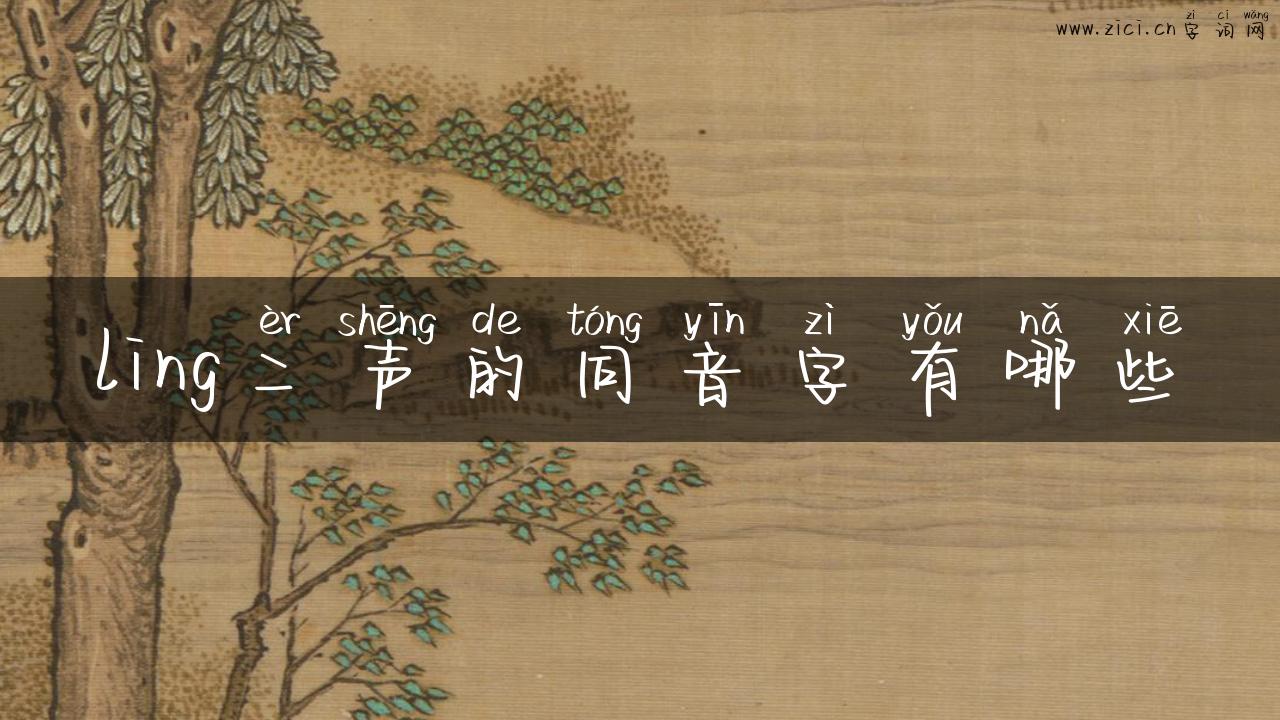 zì cí wǎng
www.zici.cn 字 词 网
èr shēng de tóng yīn zì yǒu nǎ xiē
ling二声的同音字有哪些